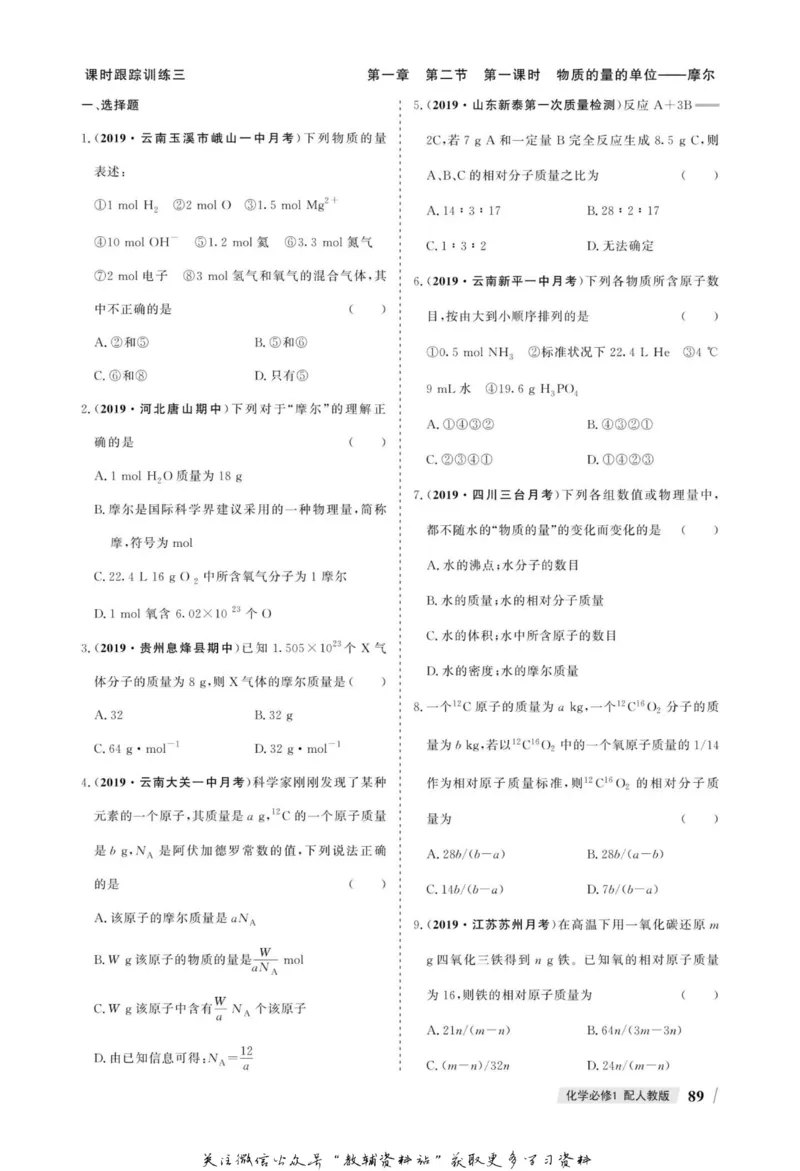 课时跟踪训练三
第一章　第二节　第一课时　物质的量的单位——摩尔
一、选择题
1.(2019·云南玉溪市峨山一中月考)下列物质的量
表述：
①1 mol H₂　②2 mol O　③1.5 mol Mg²⁺
④10 mol OH⁻　⑤1.2 mol氦　⑥3.3 mol氮气
⑦2 mol电子　⑧3 mol氢气和氧气的混合气体，其
中不正确的是　(　　)
A.②和⑤　　B.⑤和⑥
C.⑥和⑧　　D.只有⑤
2.(2019·河北唐山期中)下列对于“摩尔”的理解正
确的是　(　　)
A.1 mol H₂O质量为18 g
B.摩尔是国际科学界建议采用的一种物理量，简称
摩，符号为mol
C.22.4 L 16 g O₂中所含氧气分子为1摩尔
D.1 mol氧含6.02×10²³个O
3.(2019·贵州息烽县期中)已知1.505×10²³个X气
体分子的质量为8 g，则X气体的摩尔质量是(　　)
A.32　　B.32 g
C.64 g·mol⁻¹　　D.32 g·mol⁻¹
4.(2019·云南大关一中月考)科学家刚刚发现了某种
元素的一个原子，其质量是a g，¹²C的一个原子质量
是b g，N_A是阿伏加德罗常数的值，下列说法正确
的是　(　　)
A.该原子的摩尔质量是aN_A
B.W g该原子的物质的量是W/(aN_A) mol
C.W g该原子中含有W/a N_A个该原子
D.由已知信息可得：N_A=12/a
5.(2019·山东新泰第一次质量检测)反应A+3B══
2C，若7 g A和一定量B完全反应生成8.5 g C，则
A、B、C的相对分子质量之比为　(　　)
A.14∶3∶17　　B.28∶2∶17
C.1∶3∶2　　D.无法确定
6.(2019·云南新平一中月考)下列各物质所含原子数
目，按由大到小顺序排列的是　(　　)
①0.5 mol NH₃　②标准状况下22.4 L He　③4 ℃
9 mL水　④19.6 g H₃PO₄
A.①④③②　　B.④③②①
C.②③④①　　D.①④②③
7.(2019·四川三台月考)下列各组数值或物理量中，
都不随水的“物质的量”的变化而变化的是　(　　)
A.水的沸点；水分子的数目
B.水的质量；水的相对分子质量
C.水的体积；水中所含原子的数目
D.水的密度；水的摩尔质量
8.一个¹²C原子的质量为a kg，一个¹²C¹⁶O₂分子的质
量为b kg，若以¹²C¹⁶O₂中的一个氧原子质量的1/14
作为相对原子质量标准，则¹²C¹⁶O₂的相对分子质
量为　(　　)
A.28b/(b-a)　　B.28b/(a-b)
C.14b/(b-a)　　D.7b/(b-a)
9.(2019·江苏苏州月考)在高温下用一氧化碳还原m
g四氧化三铁得到n g铁。已知氧的相对原子质量
为16，则铁的相对原子质量为　(　　)
A.21n/(m-n)　　B.64n/(3m-3n)
C.(m-n)/32n　　D.24n/(m-n)
化学必修1　配人教版　89
关注微信公众号“教辅资料站”获取更多学习资料